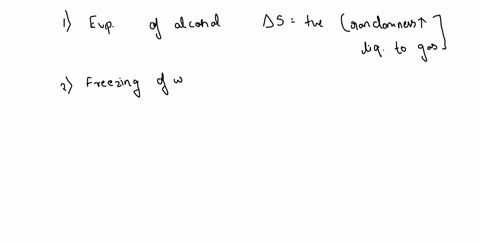 1) Evp. of alcohol ΔS = +ve (randomness ↑
liq. to gas]
2) Freezing of w